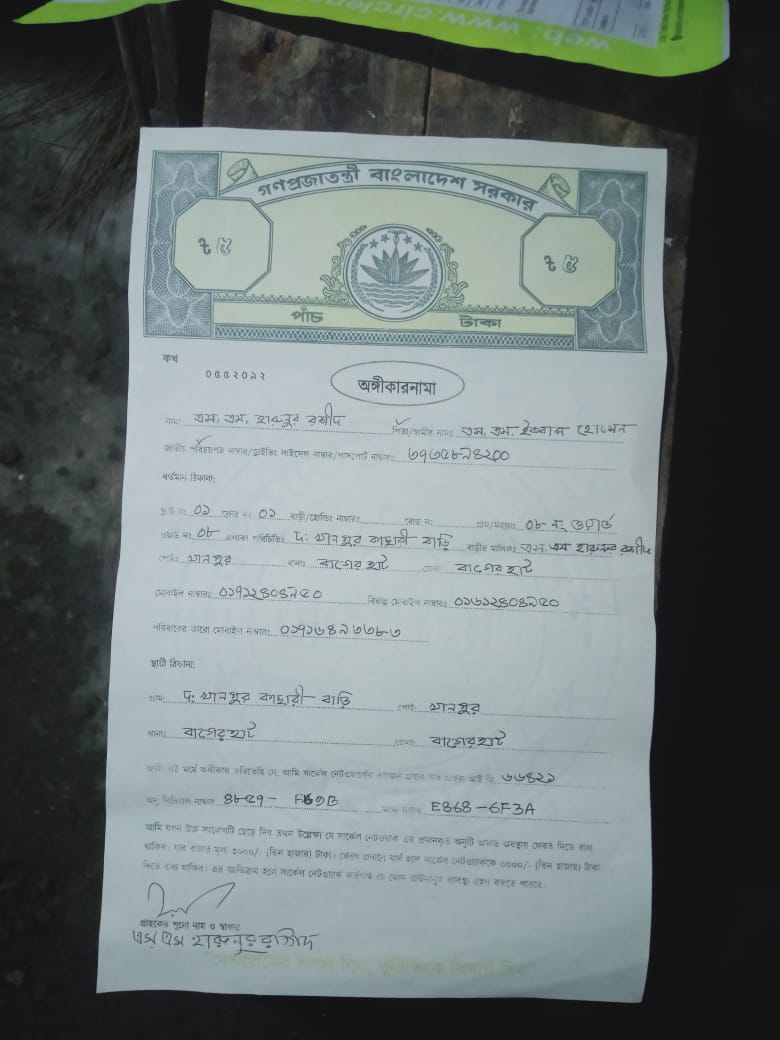 web: www.circlene
গণপ্রজাতন্ত্রী বাংলাদেশ সরকার
৳ ৫
৳ ৫
পাঁচ টাকা
কখ
০৫৫২০৯২
অঙ্গীকারনামা
নাম: এস, এম, হারুনুর রশীদ পিতা/স্বামীর নাম: এস, এম, ইকবাল হোসেন
জাতীয় পরিচয়পত্র নাম্বার/ড্রাইভিং লাইসেন্স নাম্বার/পাসপোর্ট নাম্বার:
বর্তমান ঠিকানা:
ফ্লাট নং ০১ ফ্লোর নং ০১ বাড়ী/হোল্ডিং নাম্বার: রোড নং গ্রাম/মহল্লা: ০৮ নং ওয়ার্ড
ওয়ার্ড নং: ০৮ এলাকা পরিচিতি: দ: খানপুর কাছারী-বাড়ি বাড়ীর মালিক: এস এম হারুনুর রশীদ
পোষ্ট: খানপুর থানা: বাগেরহাট জেলা: বাগেরহাট
মোবাইল নাম্বার: ০১৭১২৪০৪৯৫০ বিকল্প মোবাইল নাম্বার: ০১৬১২৪০৪৯৫০
পরিবারের কারো মোবাইল নাম্বার: ০১৭১৬৪৯৭৩৮৩
স্থায়ী ঠিকানা:
গ্রাম: দ: খানপুর কাছারী-বাড়ি পোষ্ট: খানপুর
থানা: বাগেরহাট জেলা: বাগেরহাট
আমি এই মর্মে অঙ্গীকার করিতেছি যে, আমি সার্কেল নেটওয়ার্কের একজন গ্রাহক যার গ্রাহক আই ডি ৬৬৪২৯
অনু সিরিয়াল নাম্বার ম্যাক নাম্বার E868-6F3A
আমি যখন উক্ত সংযোগটি ছেড়ে দিব তখন উল্লেখ্য যে সার্কেল নেটওয়ার্ক এর প্রদানকৃত অনুটি অক্ষত অবস্থায় ফেরত দিতে বাধ্য
থাকিব। যার বাজার মূল্য ৩০০০/- (তিন হাজার) টাকা। ফেরৎ প্রদানে ব্যর্থ হলে সার্কেল নেটওয়ার্ককে ৩০০০/- (তিন হাজার) টাকা
দিতে বাধ্য থাকিব। এর ব্যতিক্রম হলে সার্কেল নেটওয়ার্ক কর্তৃপক্ষ যে কোন আইনানুগ ব্যবস্থা গ্রহন করতে পারবে।
গ্রাহকের পুরো নাম ও স্বাক্ষর
এস এম হারুনুর রশীদ